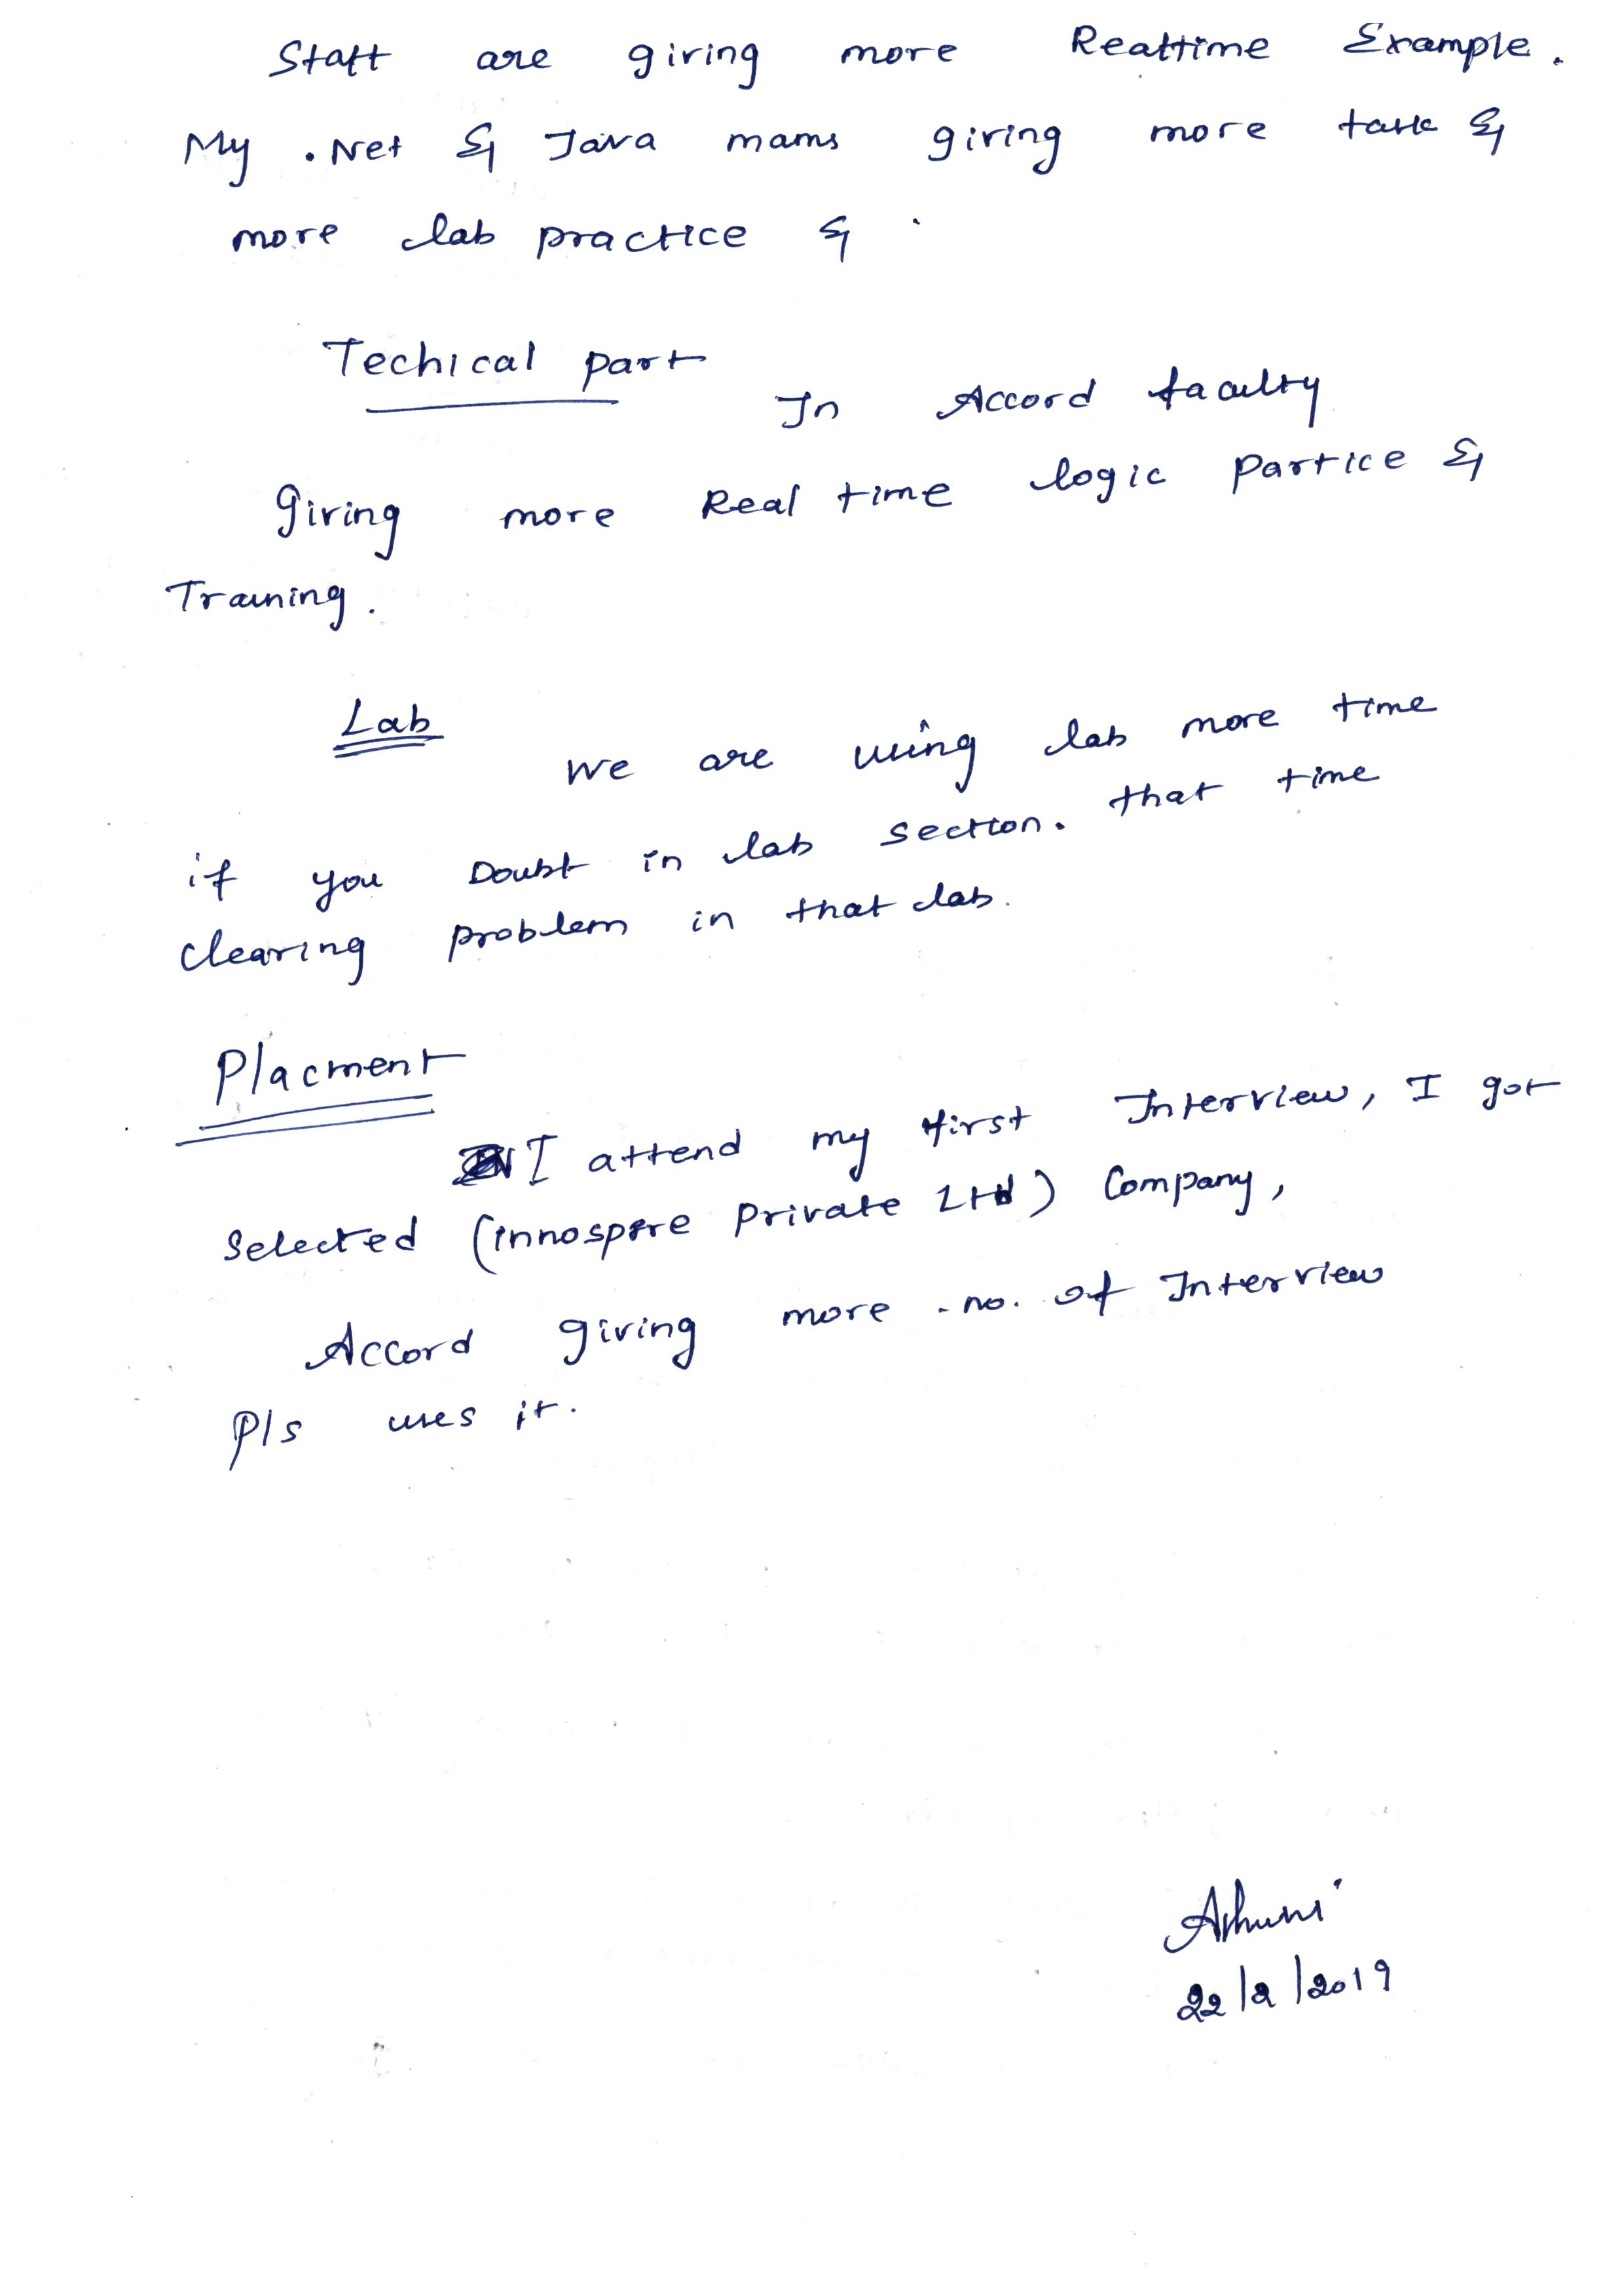 Staff are giving more Realtime Example.
My .Net & Java mams giving more task &
more lab practice &
Techical part
In Accord faculty
Giving more Real time logic Partice &
Training.
Lab
We are using lab more time
if you Doubt in lab section. that time
clearing problem in that lab.
Placment
I attend my first Interview, I got
Selected (innospire Private Ltd) Company,
Accord giving more no. of Interview
Pls uses it.
22/2/2019